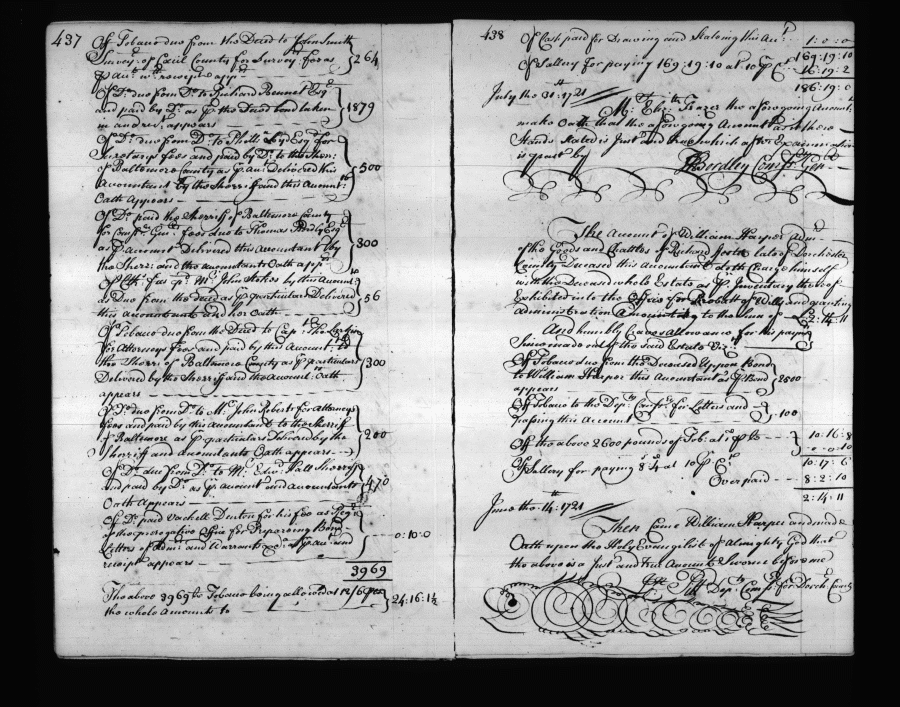 437
Of Tobacco due from the Deced to John Smith
Survey.r of Cæcil County for Survey.r fees as
264
p acct. wth. receipt app.rs
Of D.o due from D.o to Richard Bennet Esq.r
and paid by D.o as p the Deced bond taken
1879
in and rect. appears
Of D.o due from D.o to Esq.r for
Secretarys fees and paid by D.o to the Sherr:
of Baltemore County as p Acct. Delivered this
500
Accountant by the Sherriff and this Account.ts
Oath Appears
Of D.o paid the Sherriff of Baltimore County
for Fees due to Thomas Esq.r
as p Account Delivered this Accountant by
300
the Sherr: and the accountants Oath app.rs
Of fees p. M.r John Stokes by this Account.t
as Due from the deced as p particulars Delivered
56
this Accountant and her Oath
Of Tobacco due from the Deced to Cap.t
for Attorneys Fees and paid by this Account.t to
the Sherr: of Baltemore County as p particulars
300
Delivered by the Sherriff and the Account.ts Oath
appears
Of D.o due from D.o to M.r John Roberts for Attorneys
Fees and paid by this Accountant to the Sherriff
of Baltemore as p particulars Delivered by the
200
Sherriff and Accountants Oath appears
Of D.o due from D.o to M.r Edw.d Hall Sherriff
and paid by D.o as p Account and Accountants
470
Oath Appears
Of D.o paid Vachell Denton for his fees as Reg.r
of the prerogative Office for Bond
Letters of Adm.n and Warrant &c.a as p acc.t and
0:10:0
receipt appears
3969
The above 3969 lb Tobacco being allowed at 12/6 p Ct
24:16:1½
the whole Amounts to
438
Of Cash paid for Drawing and Stateing this Acc.t
1:0:0
169:19:10
Of Sallery for paying 169:19:10 at 10 p Ct
16:19:2
186:19:0
July the 31.st 1721
M.rs Eliz.th Frazer the aforegoing Account.t
make Oath that the aforegoing Account as it there
Stands Stated is Just and true which after Examination
is p
Bordley Com.ry Gen
The Account of William Harper Adm.r
of the Goods and Chattles of Richard Foster late of Dorchester
County Deceased this Accountant doth Charge himself
with the Deceased whole Estate as p Inventory thereof
Exhibited into the Office for Probatt of Wills and granting
Administration Amounting to the Sum of
£2:14:11
And humbly Craves allowance for his paym.ts
made out of the said Estate Viz.t
Of Tobacco due from the Deceased Uppon Bond
to William Harper this Accountant as p Bond
2500
appears
Of Tobacco to the Dep.ty Com.ry for Letters and
100
passing this Account
Of the above 2600 pounds of Tob: at 1.d p lb
10:16:8
0:0:10
Of Sallery for paying 8.s 4.d at 10 p Ct
10:17:6
Over paid
8:2:10
2:14:11
June the 14.th 1721
Then Came William Harper and made
Oath upon the Holy Evangilist of Almighty God that
the above is a Just and true Account Sworne before me
Dep.ty Com.ry for Dorch.r County